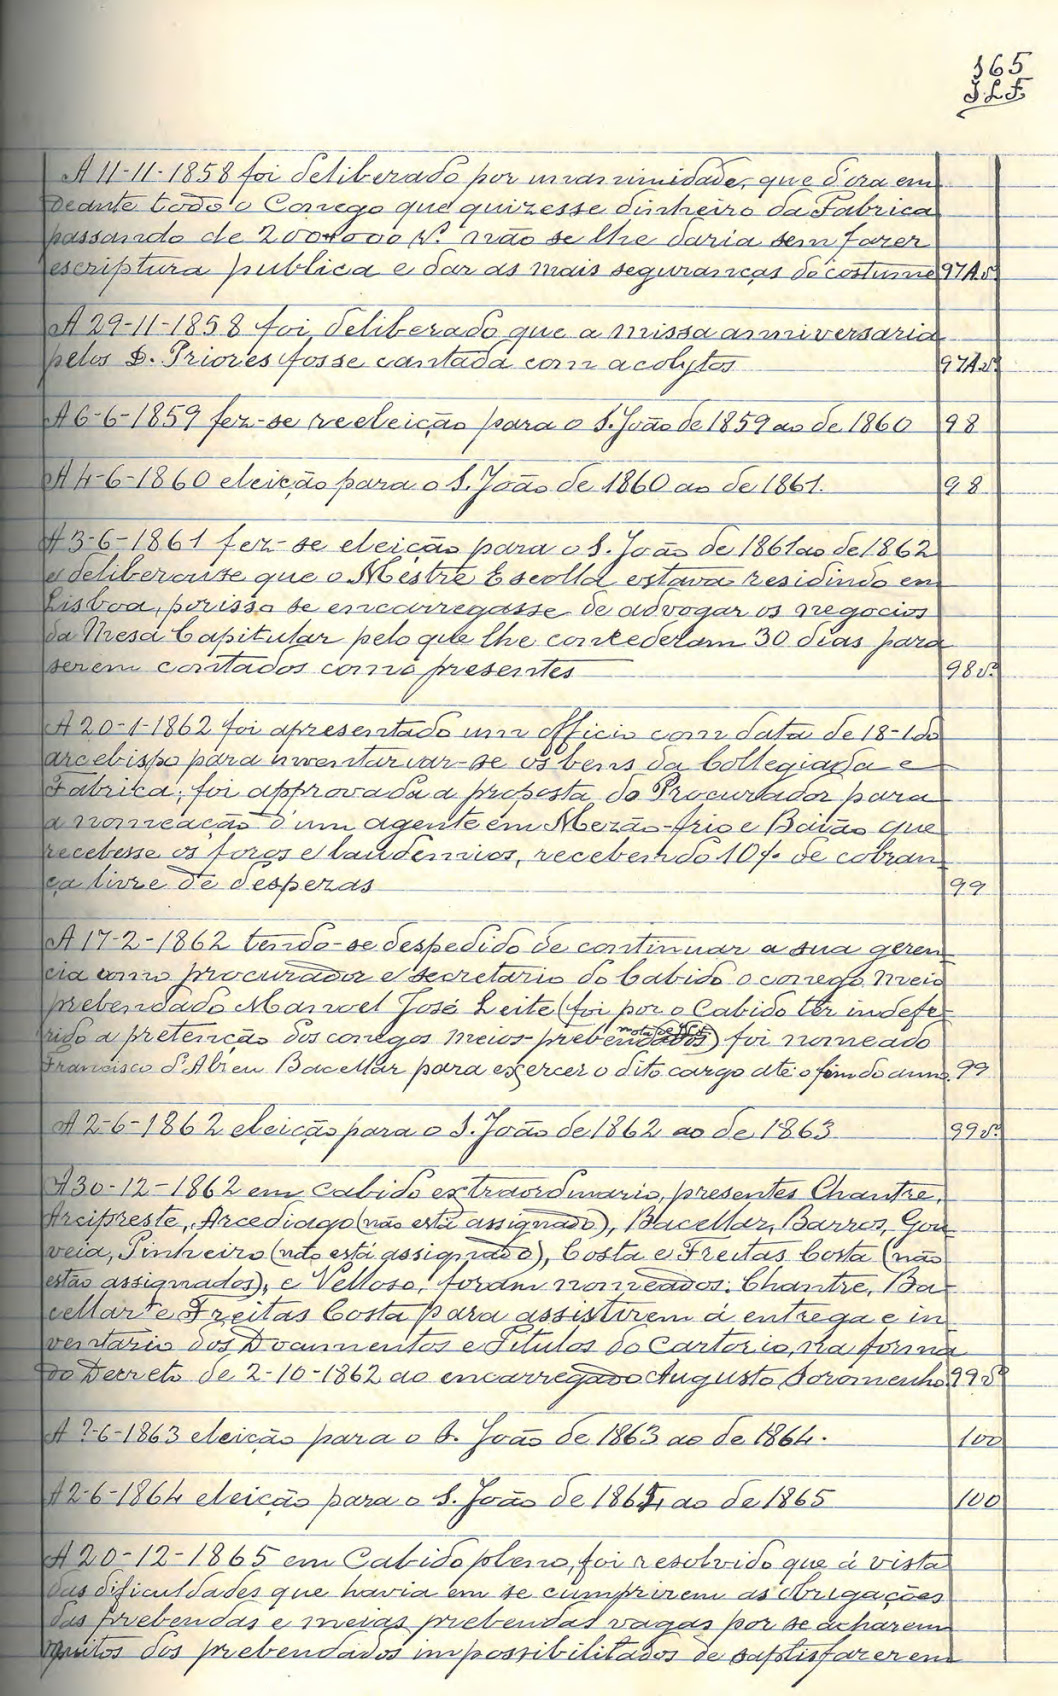 165
J.L.F.
A 11-11-1858 foi deliberado por unanimidade, que d'ora em
deante todo o Conego que quizesse dinheiro da Fabrica
passando de 200$000 r.s não se lhe daria sem fazer
escriptura publica e dar as mais seguranças do costume 97A v.
A 29-11-1858 foi deliberado que a missa anniversaria
pelos D. Priores fosse cantada com acolytos 97A v.
A 6-6-1859 fez-se reeleição para o S. João de 1859 ao de 1860 98
A 4-6-1860 eleição para o S. João de 1860 ao de 1861. 98
A 3-6-1861 fez-se eleição para o S. João de 1861 ao de 1862
e deliberou-se que o Mestre Escolla estava residindo em
Lisboa, porisso se encarregasse de advogar os negocios
da Mesa Capitular pelo que lhe concederam 30 dias para
serem contados como presentes 98 v.
A 20-1-1862 foi apresentado um officio com data de 18-1 do
arcebispo para inventariar-se os bens da Collegiada e
Fabrica; foi approvada a proposta do Procurador para
a nomeação d'um agente em Mezão-frio e Baião que
recebesse os foros e laudemios, recebendo 10% de cobran-
ça livre de despezas 99
A 17-2-1862 tendo-se despedido de continuar a sua geren-
cia como procurador e secretario do Cabido o conego meio
prebendado Manoel José Leite (foi por o Cabido ter indefe-
rido a pretenção dos conegos meios-prebendados) foi nomeado
nota de J.L.F.
Francisco d'Abreu Bacellar para exercer o dito cargo até o fim do anno. 99
A 2-6-1862 eleição para o S. João de 1862 ao de 1863 99 v.
A 30-12-1862 em cabido extraordinario, presentes Chantre,
Arcipreste, Arcediago (não está assignado), Bacellar, Barros, Gou-
veia, Pinheiro (não está assignado), Costa e Freitas Costa (não
estão assignados), e Velloso, foram nomeados: Chantre, Ba-
cellar e Freitas Costa para assistirem á entrega e in-
ventario dos Documentos e Titulos do Cartorio, na forma
do Decreto de 2-10-1862 ao encarregado Augusto Soromenho. 99 v.
A ?-6-1863 eleição para o S. João de 1863 ao de 1864. 100
A 2-6-1864 eleição para o S. João de 1864 ao de 1865 100
A 20-12-1865 em Cabido pleno, foi resolvido que á vista
das dificuldades que havia em se cumprirem as obrigações
das prebendas e meias prebendas vagas por se acharem
muitos dos prebendados impossibilitados de saptisfazerem